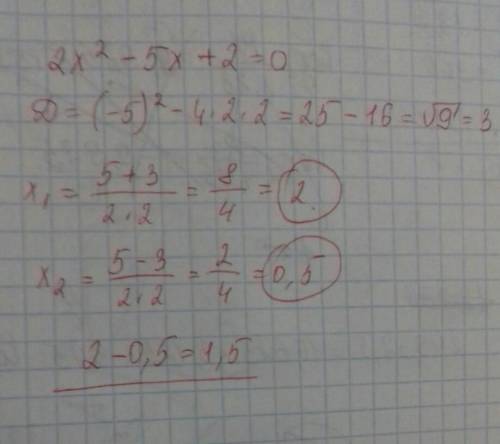 2x² - 5x + 2 = 0
D = (-5)² - 4·2·2 = 25 - 16 = √9 = 3
x₁ = (5+3)/(2·2) = 8/4 = 2
x₂ = (5-3)/(2·2) = 2/4 = 0,5
2 - 0,5 = 1,5